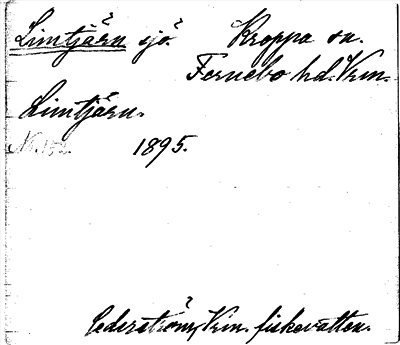 Limtjärn sjö. Kroppa sn.
Fernebo hd. Vrm.
Limtjärn.
Nr. 152 1895.
Cederström, Vrm. fiskevatten.